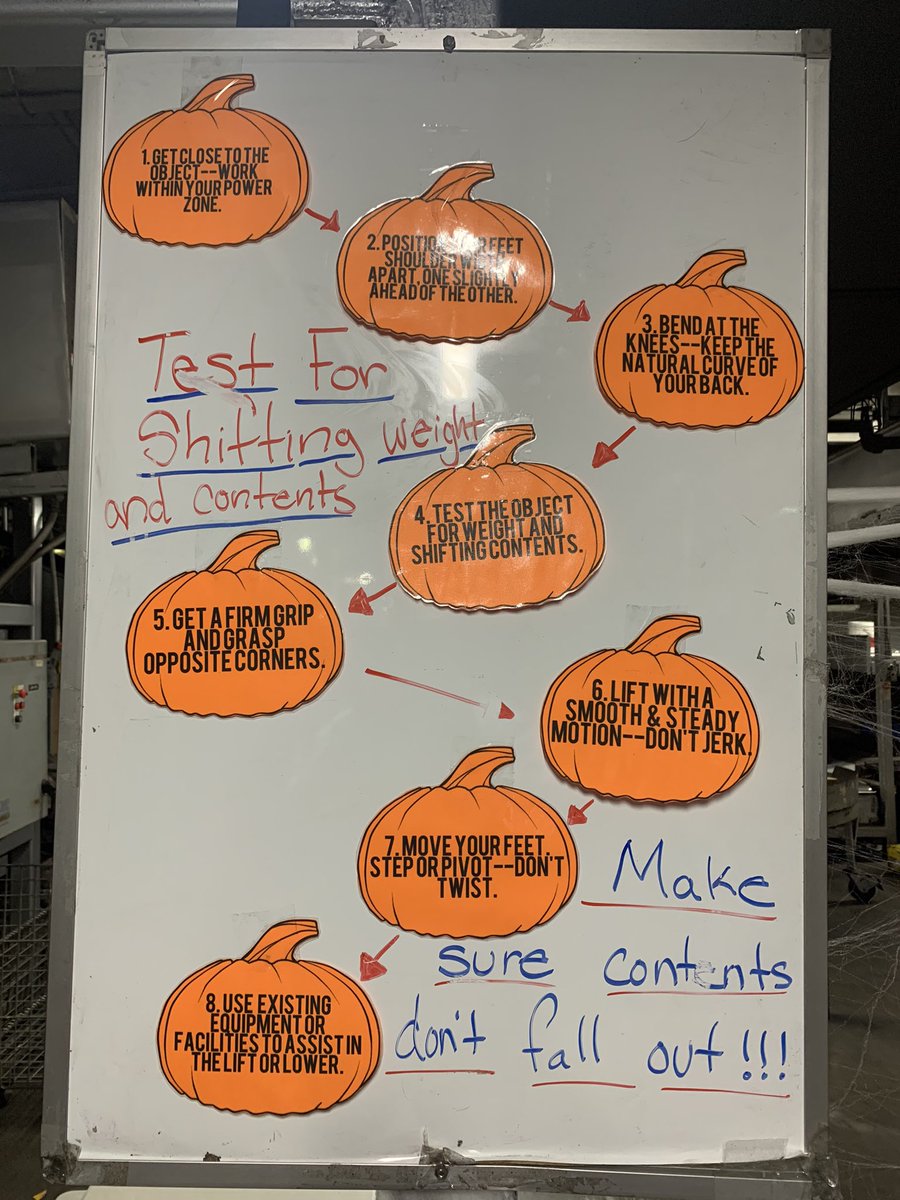 1. GET CLOSE TO THE
OBJECT--WORK
WITHIN YOUR POWER
ZONE.
2. POSITION YOUR FEET
SHOULDER WIDTH
APART, ONE SLIGHTLY
AHEAD OF THE OTHER.
3. BEND AT THE
KNEES--KEEP THE
NATURAL CURVE OF
YOUR BACK.
Test For
Shifting weight
and contents
4. TEST THE OBJECT
FOR WEIGHT AND
SHIFTING CONTENTS.
5. GET A FIRM GRIP
AND GRASP
OPPOSITE CORNERS.
6. LIFT WITH A
SMOOTH & STEADY
MOTION--DON'T JERK.
7. MOVE YOUR FEET,
STEP OR PIVOT--DON'T
TWIST.
8. USE EXISTING
EQUIPMENT OR
FACILITIES TO ASSIST IN
THE LIFT OR LOWER.
Make
sure contents
don't fall out!!!